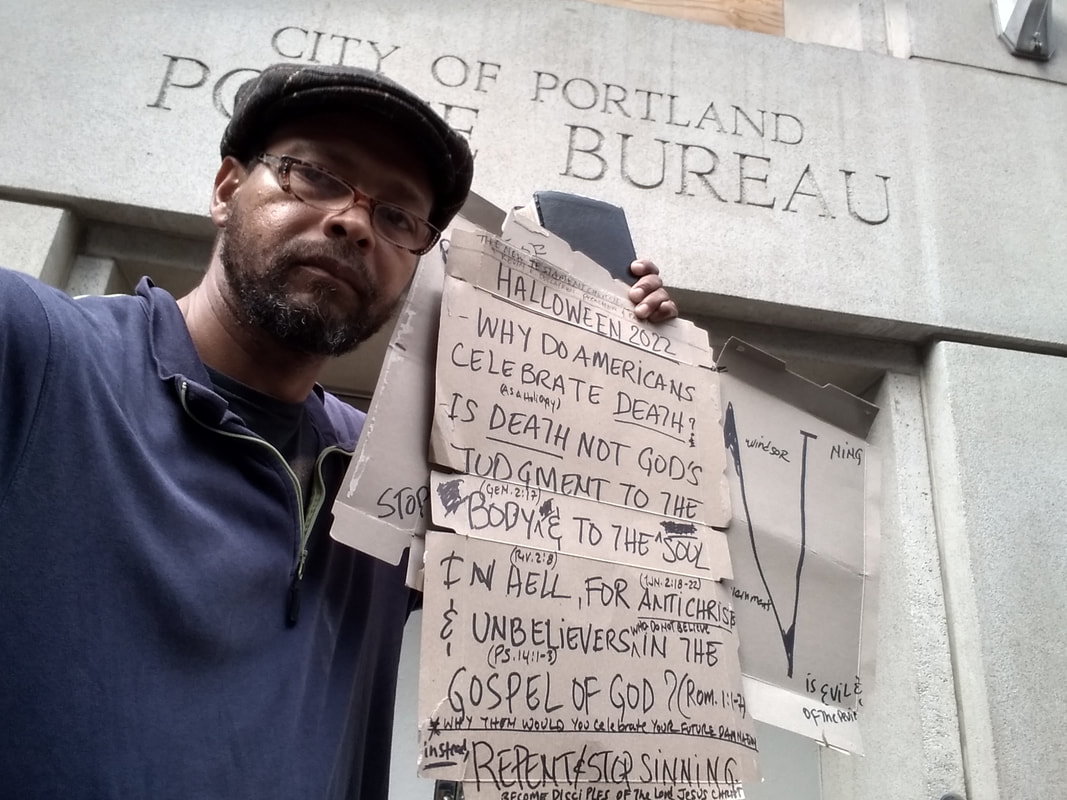 CITY OF PORTLAND
PO E BUREAU
THE NEW TESTAMENT
HALLOWEEN 2022
- WHY DO AMERICANS
CELEBRATE DEATH?
(AS A HOLIDAY)
- IS DEATH NOT GOD'S
JUDGMENT TO THE
(GEN. 2:17)
BODY & TO THE SOUL
(REV. 2:8)
IN HELL, FOR ANTICHRISTS
(1JN. 2:18-22)
& UNBELIEVERS IN THE
WHO DO NOT BELIEVE
(PS. 14:1-3)
GOSPEL OF GOD? (ROM. 1:1-7)
* WHY THEN WOULD YOU celebrate YOUR FUTURE DAMNATION
instead, REPENT & STOP SINNING
BECOME DISCIPLES OF The Lord JESUS CHRIST
STOP
windsor
NING
ernment
is EVIL &
OF The Devil